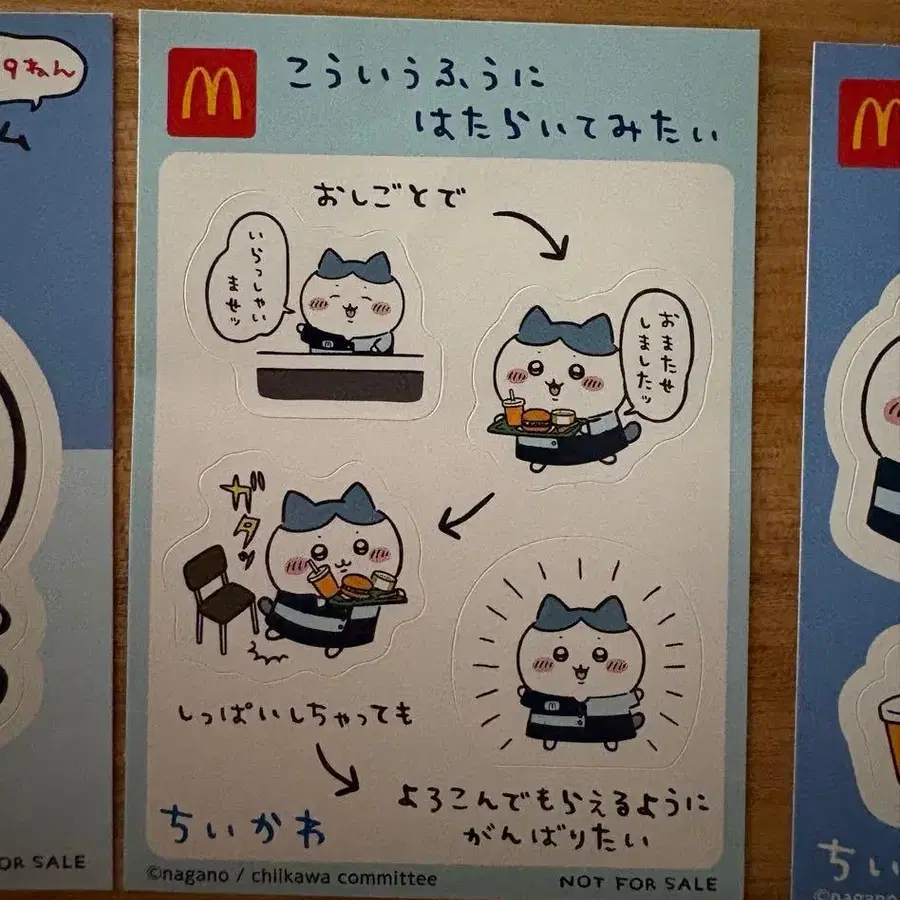 9ねん
OR SALE
こういうふうに
はたらいてみたい
おしごとで
いらっしゃい
ませッ
おまたせ
しましたッ
ガタッ
しっぱいしちゃっても
よろこんでもらえるように
がんばりたい
ちいかわ
©nagano / chiikawa committee
NOT FOR SALE
ちい
©nagano